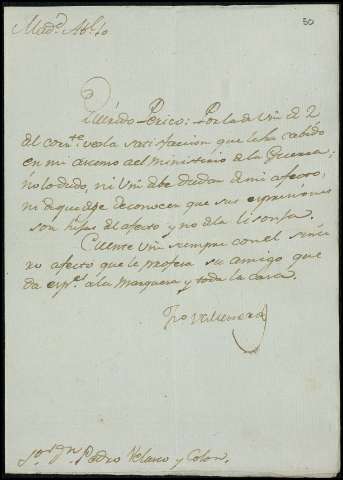 50
Mad.d Ab.l 10
Querido Perico: Por la de Vm de 2
del corr.te veo la satisfaccion que le ha cabido
en mi acenso ael Ministerio de la Guerra;
no lo dudo, ni Vm debe dudar de mi afecto,
ni de que dexe de conocer que sus expresiones
son hijas del afecto y no de la lisonja.
Cuente Vm siempre con el since
ro afecto que le profesa su amigo que
da exp.s a la Marquesa y toda la casa.
S.or Dn Pedro Velasco y Colon.